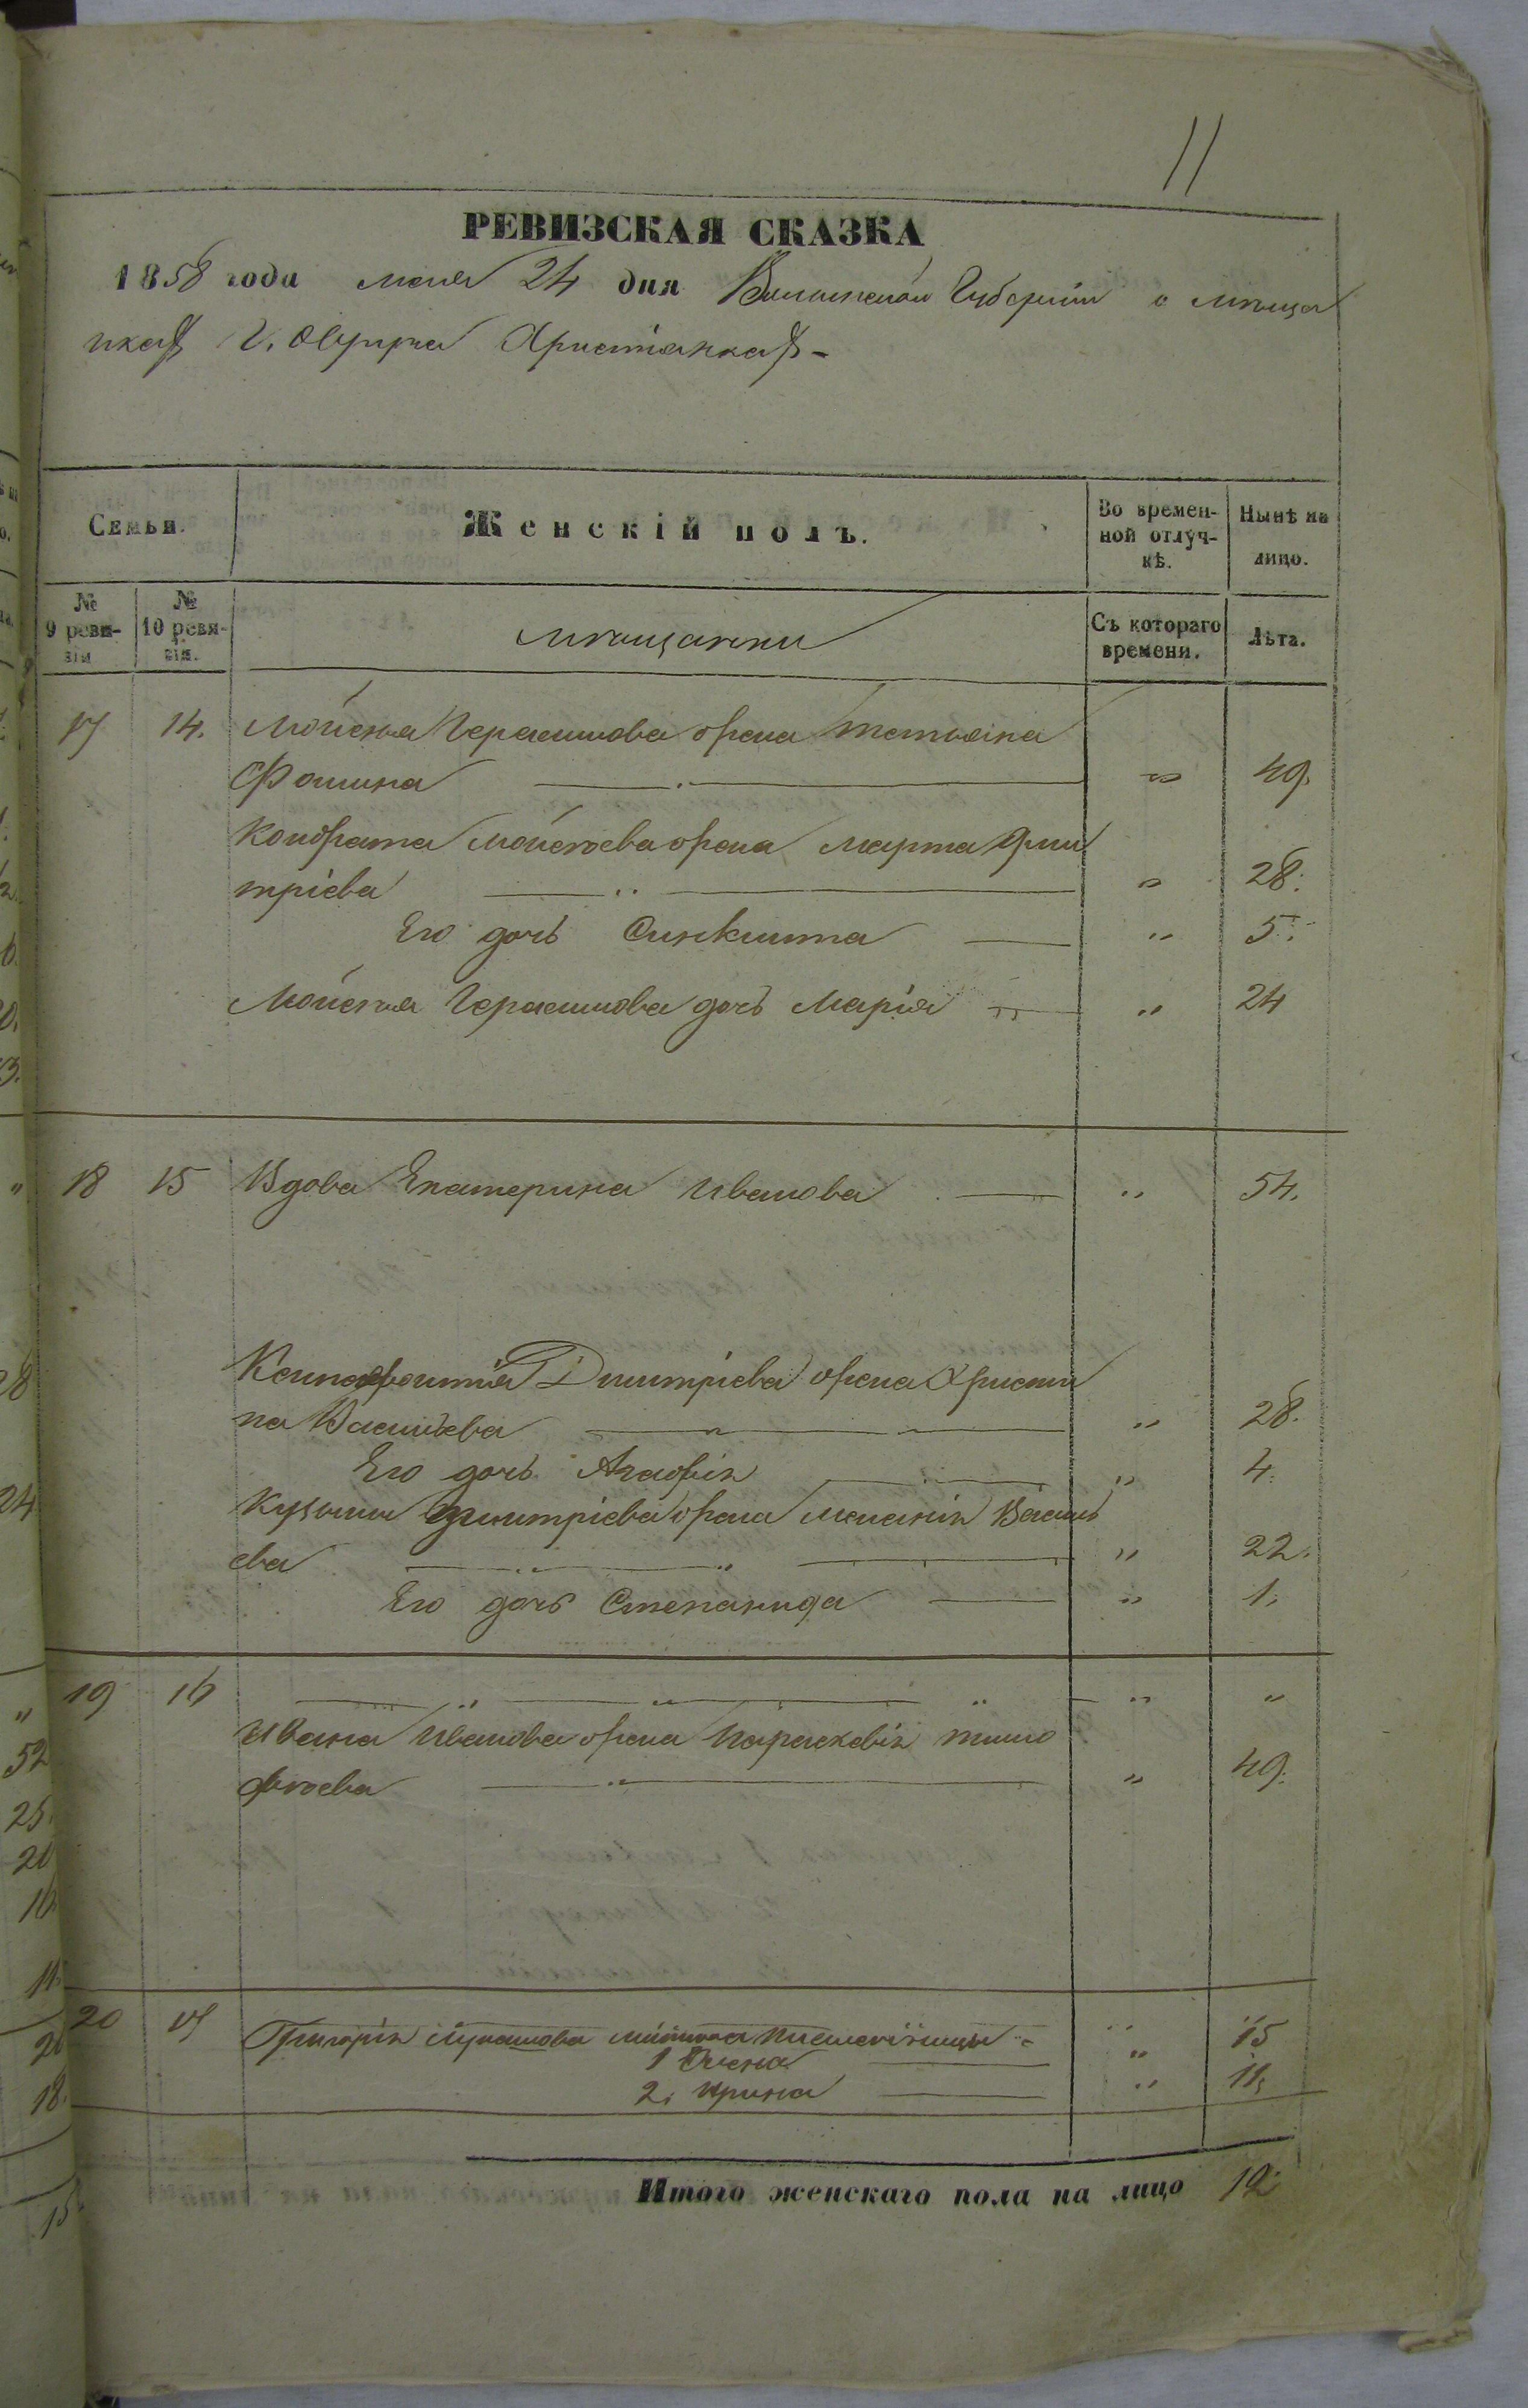 11
РЕВИЗСКАЯ СКАЗКА
1858 года мая 24 дня Виленской Губерніи о мѣща
нкахъ г. Христіанкахъ -
Семьи.
Женскій полъ.
Во времен-
ной отлуч-
кѣ.
Нынѣ на
лицо.
№
9 реви-
зіи
№
10 реви-
зіи.
мѣщанки
Съ котораго
времени.
Лѣта.
17 14. Мойсея Герасимова жена Татьяна
Фомина " 49.
Кондрата Мойсеева жена Марта Дми
тріева " 28.
Его дочь Синклита " 5.
Мойсея Герасимова дочь Марія " 24
18 15 Вдова Екатерина Иванова " 54.
Дмитріева жена Христи
на Васильева " 28.
Его дочь Агафія " 4.
Кузьмы Дмитріева жена Меланія Василь
ева " 22.
Его дочь Степанида " 1.
19 16 " "
Ивана Иванова жена Параскевія Тимо
фѣева " 49.
20 17 Григорія племянницы " 15
1 Елена "
2. Ирина " 11.
Итого женскаго пола на лицо 12
28
24
"
52
25.
21
18.
15.